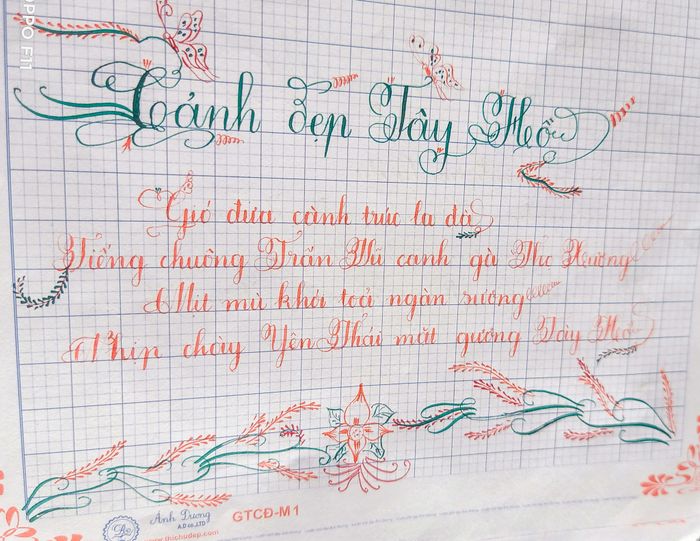 OPPO F11
Cảnh đẹp Tây Hồ
Gió đưa cành trúc la đà
Tiếng chuông Trấn Vũ canh gà Thọ Xương
Mịt mù khói toả ngàn sương
Nhịp chày Yên Thái mặt gương Tây Hồ
Ánh Dương
A.D co.,LTD
www.thichudep.com
GTCĐ-M1